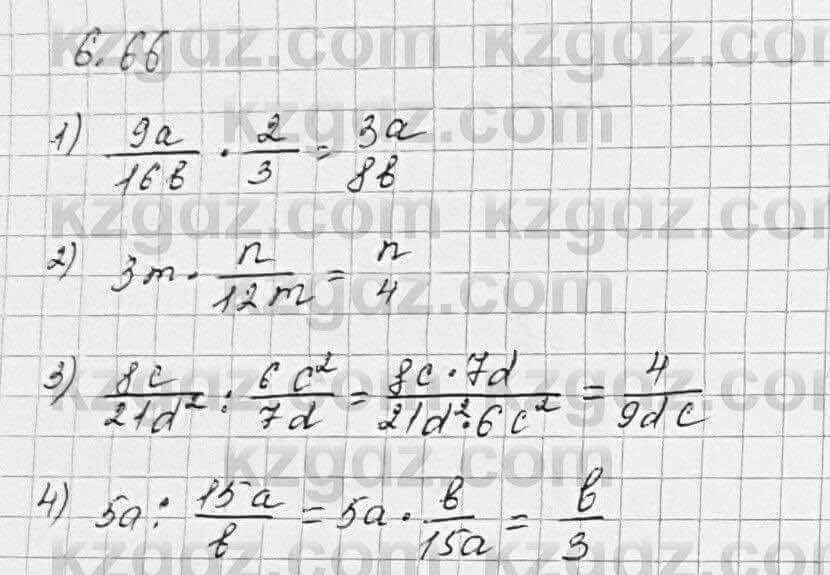 6.66
1) 9a/16b · 2/3 = 3a/8b
2) 3m · n/12m = n/4
3) 8c/21d² : 6c²/7d = 8c·7d/21d²·6c² = 4/9dc
4) 5a : 15a/b = 5a · b/15a = b/3
kzgdz.com kzgdz.com
kzgdz.com
kzgdz.com kzgdz.com
kzgdz.com
kzgdz.com kzgdz.com
kzgdz.com
kzgdz.com kzgdz.com